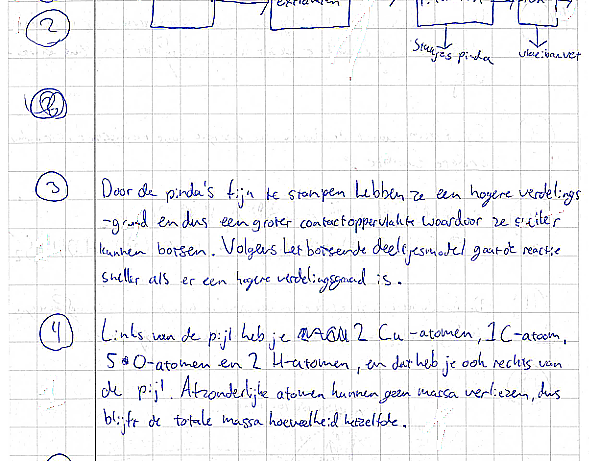 extraheren
2
Stukjes pinda
vloeibaar vet
3
Door de pinda's fijn te stampen hebben ze een hogere verdelings
-graad en dus een groter contactoppervlakte waardoor ze sneller
kunnen botsen. Volgens het botsende deeltjesmodel gaat de reactie
sneller als er een hogere verdelingsgraad is.
4
Links van de pijl heb je 2 Cu-atomen, 1 C-atoom,
5 O-atomen en 2 H-atomen, en dat heb je ook rechts van
de pijl. Afzonderlijke atomen kunnen geen massa verliezen, dus
blijft de totale massa hoeveelheid hetzelfde.